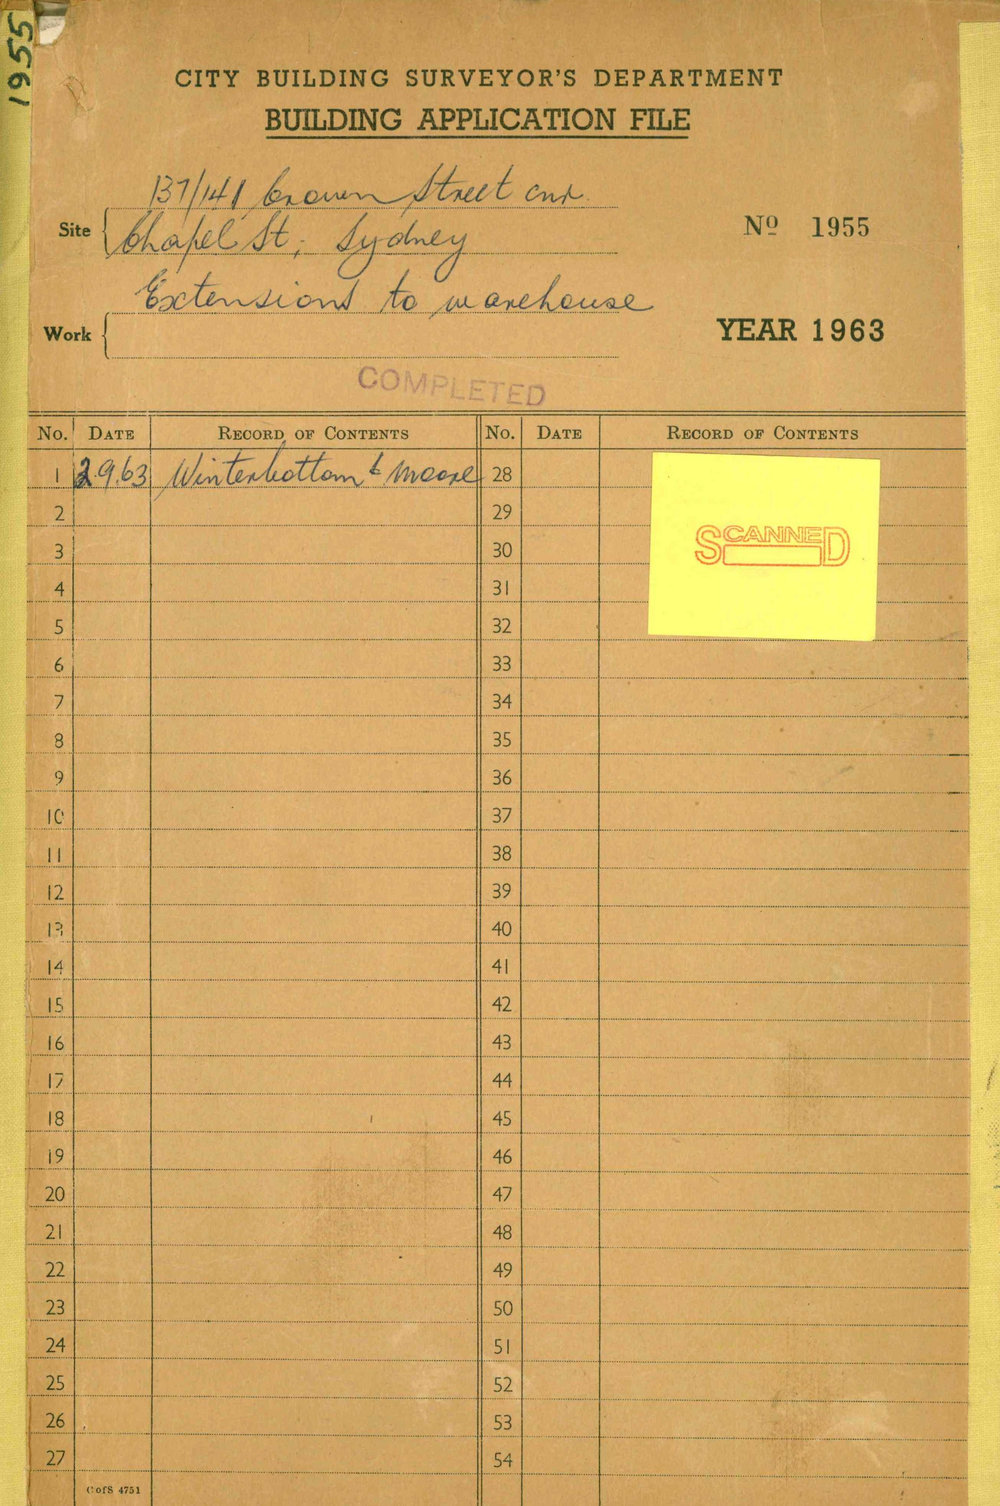 1955
CITY BUILDING SURVEYOR'S DEPARTMENT
BUILDING APPLICATION FILE
Site
137/141 Crown Street cnr.
Chapel St; Sydney
Nº 1955
Work
Extensions to warehouse
YEAR 1963
COMPLETED
No. DATE RECORD OF CONTENTS No. DATE RECORD OF CONTENTS
1 2.9.63 Winterbottom & Moore 28
2 29
3 30
4 31
5 32
SCANNED
6 33
7 34
8 35
9 36
10 37
11 38
12 39
13 40
14 41
15 42
16 43
17 44
18 45
19 46
20 47
21 48
22 49
23 50
24 51
25 52
26 53
27 54
C of S 4751